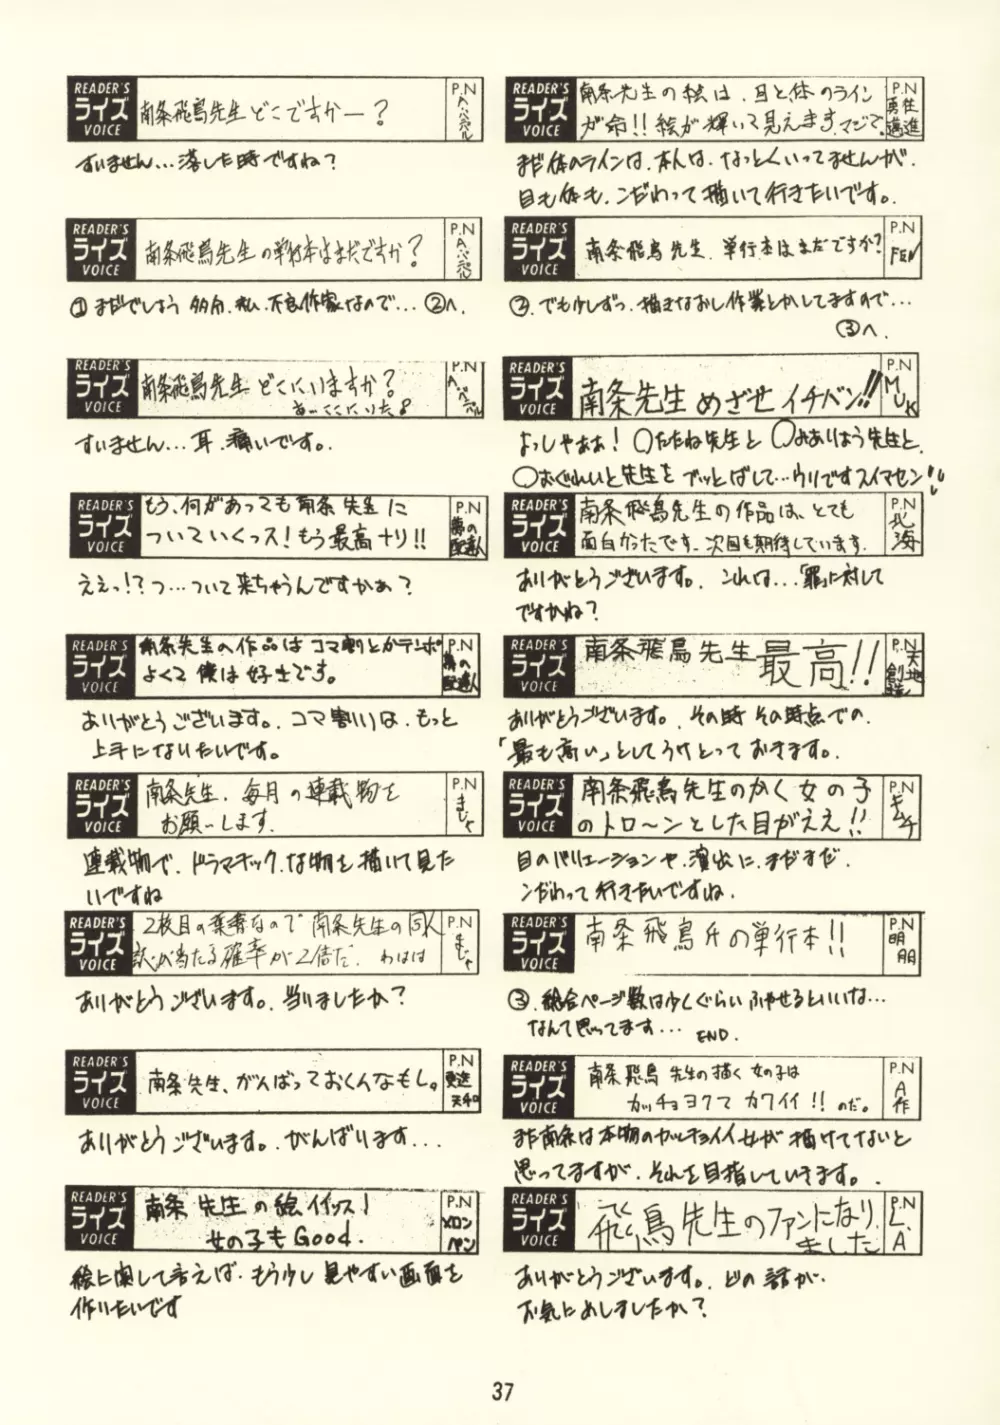 READER'S
ライズ
VOICE
南条飛鳥先生どこですかー?
P.N
すいません…落した時ですね?
READER'S
ライズ
VOICE
南条飛鳥先生の単行本はまだですか?
P.N
①まだでしょう 多分、私、不良作家なので… ②へ.
READER'S
ライズ
VOICE
南条飛鳥先生 どこにいますか?
あ、ここにいた
P.N
すいません…耳、痛いです。
READER'S
ライズ
VOICE
もう、何があっても南条先生に
ついていくっス!もう最高ナリ!!
P.N
夢の
配達人
ええっ!?つ…ついて来ちゃうんですかぁ?
READER'S
ライズ
VOICE
南条先生の作品はコマ割とかテンポ
よくて僕は好きです。
P.N
夢の
配達人
ありがとうございます。コマ割りは、もっと
上手になりたいです。
READER'S
ライズ
VOICE
南条先生、毎月の連載物を
お願いします.
P.N
連載物で、ドラマチックな物を描いて見た
いですね
READER'S
ライズ
VOICE
2枚目の葉書なので南条先生の同人
誌が当たる確率が2倍だ. わはは
P.N
ありがとうございます。当りましたか?
READER'S
ライズ
VOICE
南条先生、がんばっておくんなもし。
P.N
ありがとうございます。がんばります…
READER'S
ライズ
VOICE
南条先生の絵イイッス!
女の子もGood.
P.N
メロン
パン
絵に関して言えば、もう少し見やすい画面を
作りたいです
READER'S
ライズ
VOICE
南条先生の絵は、目と、体のライン
が命!!絵が輝いて見えます、マジで。
P.N
勇往
邁進
まだ体のラインは、本人は、なっとくいってませんが、
目も体も、こだわって描いて行きたいです。
READER'S
ライズ
VOICE
南条飛鳥先生、単行本はまだですか?
P.N
FEN
②.でも少しずつ、描きなおし作業とかしてますので…
③へ.
READER'S
ライズ
VOICE
南条先生めざせイチバン!!
P.N
MUK
よっしゃぁぁ! 〇たたね先生と〇みありょう先生と、
〇おぐれいと先生をブッとばして…ウソですスイマセン!!
READER'S
ライズ
VOICE
南条飛鳥先生の作品は、とても
面白かったです。次回も期待しています.
P.N
北海
ありがとうございます。これは…「罪」に対して
ですかね?
READER'S
ライズ
VOICE
南条飛鳥先生最高!!
P.N
天地
創造
ありがとうございます。その時その時点での、
「最も高い」としてうけとっておきます。
READER'S
ライズ
VOICE
南条飛鳥先生のかく女の子
のトロ〜ンとした目がええ!!
P.N
キムチ
目のバリエーションや、演出に、まだまだ、
こだわって行きたいですね.
READER'S
ライズ
VOICE
南条飛鳥氏の単行本!!
P.N
明
月月
③.総合ページ数は少しぐらいふやせるといいな…
なんて思ってます… END.
READER'S
ライズ
VOICE
南条飛鳥先生の描く女の子は
カッチョヨクてカワイイ!! のだ。
P.N
A
作
まだ南条は本物のカッチョイイ女が描けてないと
思ってますが、それを目指していきます。
READER'S
ライズ
VOICE
飛鳥先生のファンになり
ました
P.N
L.A
ありがとうございます。どの話が、
お気にめしましたか?
37